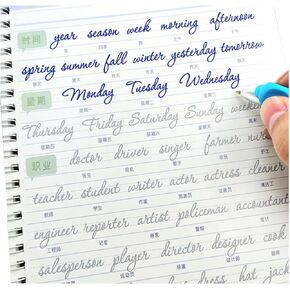 时间 year season week morning afternoon
spring summer fall winter yesterday tomorrow
春天 夏天 秋天 冬天 昨天 明天
星期 Monday Tuesday Wednesday
星期一 星期二 星期三
Thursday Friday Saturday Sunday weekend
星期四 星期五 星期六 星期天
职业 doctor driver singer farmer nurse
医生 司机 歌手 农民 护士
teacher student writer actor actress cleaner
教师 学生 作家 男演员 女演员 清洁工
engineer reporter artist policeman accountant
工程师 记者 警察 会计
salesperson player director designer cook
导演 设计师 厨师
dress hat jacket